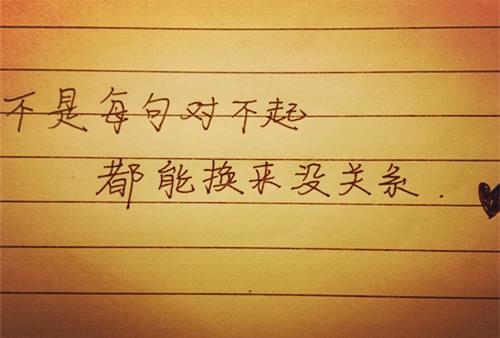 不是每句对不起
都能换来没关系.